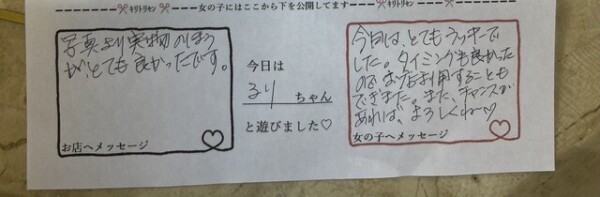 キリトリセン 女の子にはここから下を公開してます キリトリセン
写真より実物のほう
が、とても良かったです。
お店へメッセージ
今日は
るり ちゃん
と遊びました♡
今日は、とてもラッキーで
した。タイミングも良かった
のでお店利用することも
できました。また、チャンスが
あれば、よろしくね〜♡
女の子へメッセージ